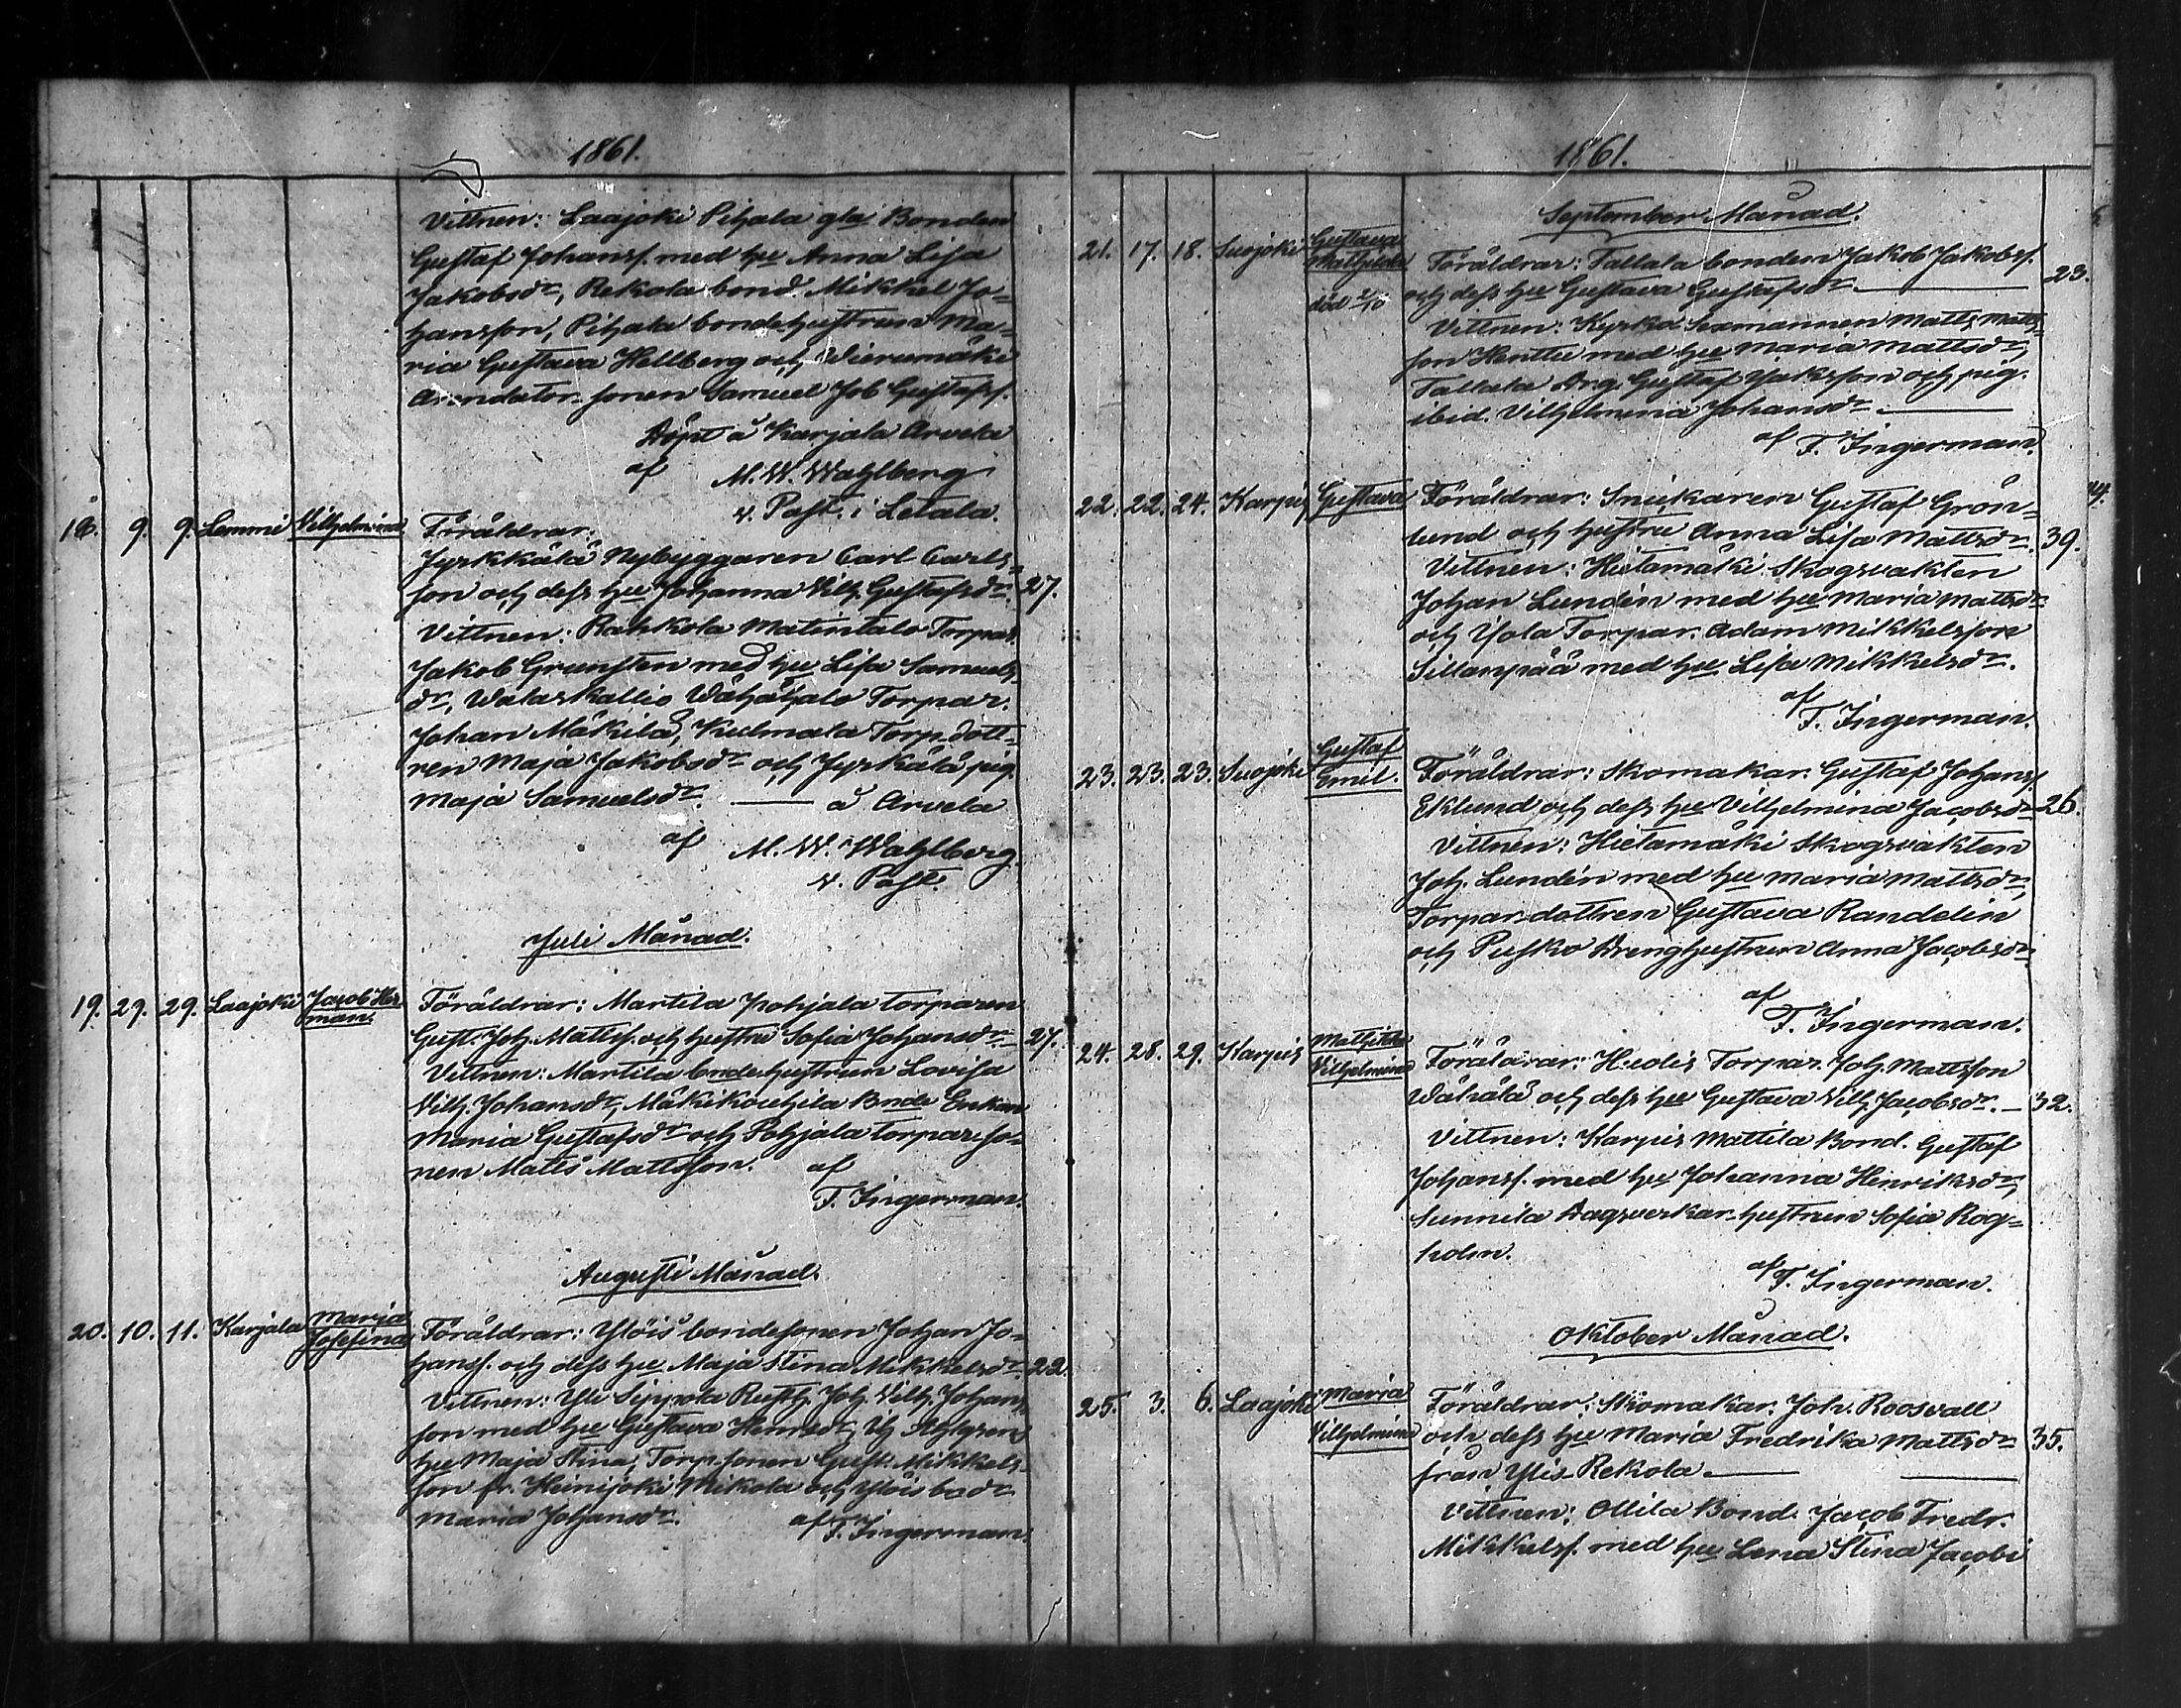 1861.
Vittnen: Laajoki Pihala gla Bonden
Gustaf Johansf. med hu Anna Lisa
Jakobsdr, Rekola bond. Mikkel Jo-
hansson, Pihala bondehustrun Ma-
ria Gustava Hellberg och Wierumäki
Arendator-sonen Samuel Job Gustafsf.
Döpt å Karjala Arvela
af M. W. Wahlberg
v. Past. i Letala.
18. 9. 9. Lemmi Vilhelmina Föräldrar.
Jyrkkälä Nybyggaren Carl Carls-
son och dess hu Johanna Vilh. Gustafsdr. 27.
Vittnen: Rahkola Matintalo Torpar.
Jakob Grunsten med hu Lisa Samuels
dr, Wataskallio Wähätalo Torpar.
Johan Mäkilä, Kulmala Torp.dott-
ren Maja Jakobsdr och Jyrkälä pig.
Maja Samuelsdr. — å Arvela
af M. W. Wahlberg
v. Past.
Juli Månad.
19. 29. 29. Laajoki Jacob Her-
man. Föräldrar: Martila Pohjala torparen
Gust. Joh. Mattsf. och hustru Sofia Johansdr. — 27.
Vittnen: Martila bondehustrun Lovisa
Vilh. Johansdr, Mäkikouhila Bnde Enkan
Maria Gustafsdr och Pohjala torpare-so-
nen Matts Mattsson. af
F. Ingerman.
Augusti Månad.
20. 10. 11. Karjala Maria
Josefina Föräldrar: Ylöis bondesonen Johan Jo-
hansf. och dess hu Maja Stina Mikkelsdr. 22.
Vittnen: Yli Sippola Rusth. Joh. Vilh. Johans-
son med hu Gustava Henrsdr, Ahlgrens
hu Maja Stina, Torp.sonen Gust. Mikkels-
son fr. Heinijoki Mikola och Ylöis bodr
Maria Johansdr. af F. Ingerman.
1861.
September Månad.
21. 17. 18. Suojoki Gustava
Mathilda
död Föräldrar: Tallala bonden Jakob Jakobsf.
och dess hu Gustava Gustafsdr — 23.
Vittnen: Kyrko Sexmannen Matts Matts-
son Henttu med hu Maria Mattsdr,
Tallala drg. Gustaf Jakobsson och pig.
ibid. Vilhelmina Johansdr. —
af F. Ingerman.
22. 22. 24. Karpis Gustava Föräldrar: Snickaren Gustaf Grön-
lund och hustru Anna Lisa Mattsdr. 39.
Vittnen: Hietamäki Skogsvakten
Johan Lundén med hu Maria Mattsdr
och Yola Torpar. Adam Mikkelsson
Sillanpää med hu Lisa Mikkelsdr.
af
F. Ingerman.
23. 23. 23. Suojoki Gustaf
Emil. Föräldrar: Skomakar. Gustaf Johansf.
Eklund och dess hu Vilhelmina Jacobsdr 26.
Vittnen: Hietamäki Skogsvakten
Joh. Lundén med hu Maria Mattsdr,
Torpar-dottren Gustava Randelin
och Pusko Drenghustrun Anna Jacobsdr
af
F. Ingerman.
24. 28. 29. Karpis Mathilda
Vilhelmina Föräldrar: Huolis Torpar. Joh. Mattsson
Wähälä och dess hu Gustava Vilh. Jacobsdr. — 32.
Vittnen: Karpis Mattila Bond. Gustaf
Johansf. med hu Johanna Henriksdr,
Sunnila Dagsverkar-hustrun Sofia Rog-
holm.
af F. Ingerman.
Oktober Månad.
25. 3. 6. Laajoki Maria
Vilhelmina Föräldrar: Skomakar. Joh. Roosvall
och dess hu Maria Fredrika Mattsdr 35.
från Ylis Rekola. —
Vittnen: Ollila Bond. Jacob Fredr.
Mikkelsf. med hu Lena Stina Jacobs